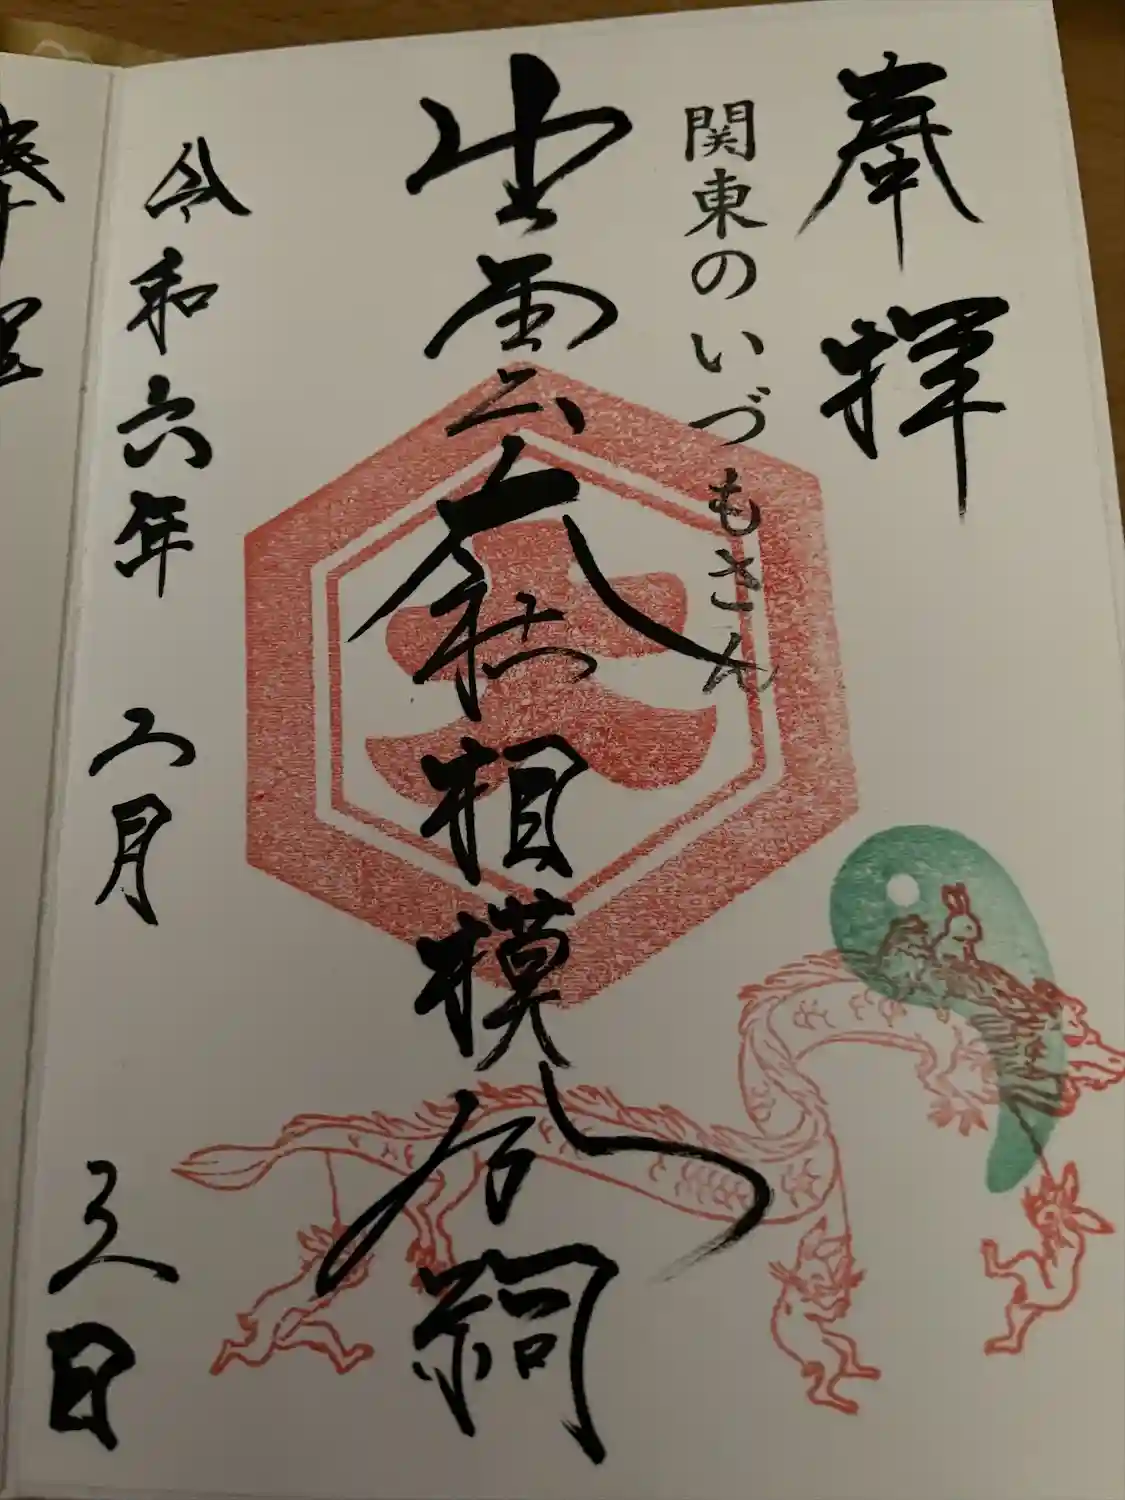 奉拝
関東のいづもさん
出雲大社相模分祠
令和六年 二月 三日
大